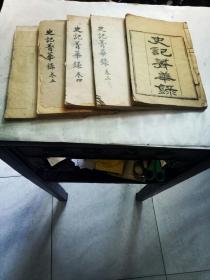 史記菁華錄
史記菁華錄 卷三
史記菁華錄 卷四
史記菁華錄 卷五